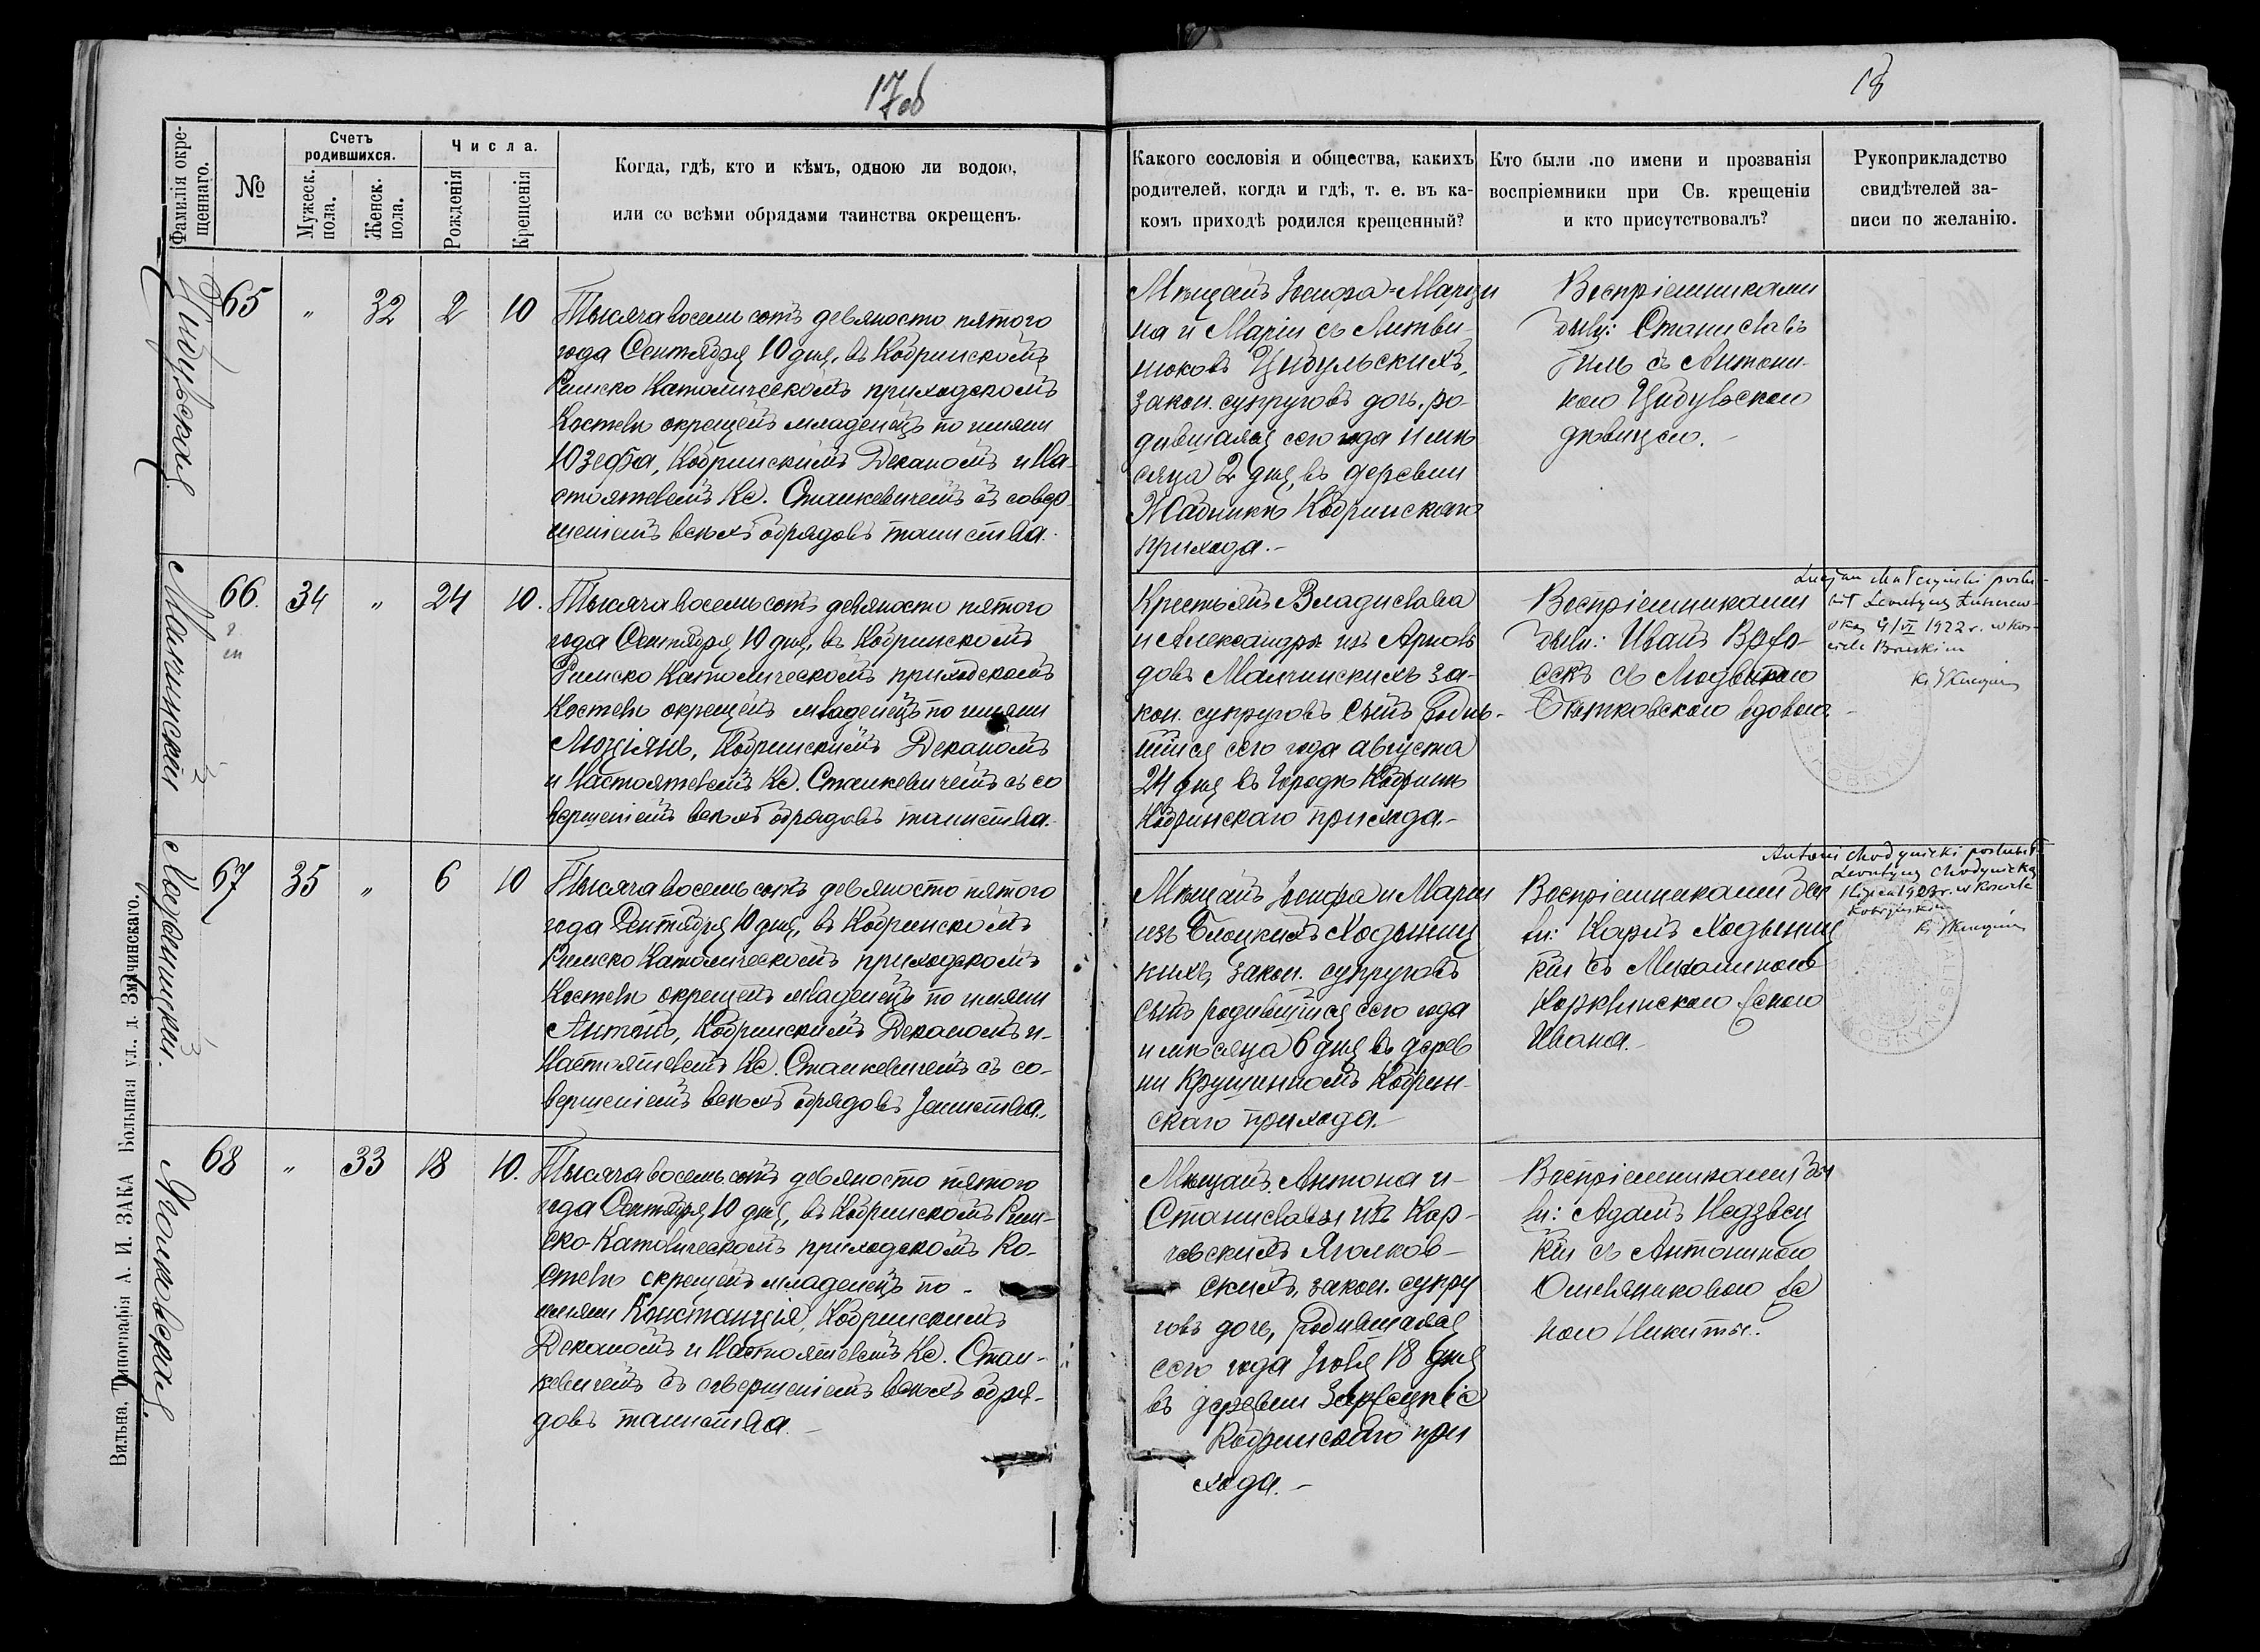 17об
18
Фамилія окре-
щеннаго.
№
Счетъ
родившихся.
Мужеск.
пола.
Женск.
пола.
Числа.
Рожденія
Крещенія
Когда, гдѣ, кто и кѣмъ, одною ли водою,
или со всѣми обрядами таинства окрещенъ.
Какого сословія и общества, какихъ
родителей, когда и гдѣ, т. е. въ ка-
комъ приходѣ родился крещенный?
Кто были по имени и прозванія
воспріемники при Св. крещеніи
и кто присутствовалъ?
Рукоприкладство
свидѣтелей за-
писи по желанію.
Цыбульская.
65 " 32 2 10
Тысяча восемь сотъ девяносто пятого
года Сентября 10 дня, въ Кобринскомъ
Римско Католическомъ приходскомъ
Костелѣ окрещенъ младенецъ по имени
Юзефа, Кобринскимъ Деканомъ и На-
стоятелемъ Кс. Станкевичемъ съ совер-
шеніемъ всѣхъ обрядовъ таинства.
Мѣщанъ Іосифа-Марци
на и Маріи съ Литви-
нюковъ Цыбульскихъ,
закон. супруговъ дочь, ро-
дившаяся сего года и мѣ
сяца 2 дня, въ деревни
Жабникѣ Кобринскаго
прихода.-
Воспріемниками
были: Станиславъ
Гиль съ Антони-
ною Цыбульскою
дѣвицею.-
Малчинскій
66. 34 " 24 10.
Тысяча восемь сотъ девяносто пятого
года Сентября 10 дня, въ Кобринскомъ
Римско Католическомъ приходскомъ
Костелѣ окрещенъ младенецъ по имени
Люціянъ, Кобринскимъ Деканомъ
и Настоятелемъ Кс. Станкевичемъ съ со
вершеніемъ всѣхъ обрядовъ таинства.
Крестьянъ Владислава
и Александры изъ Арно
довъ Малчинскихъ за-
кон. супруговъ сынъ родив-
шійся сего года августа
24 дня въ городѣ Кобринѣ
Кобринскаго прихода.-
Воспріемниками
были: Иванъ
съ Людвикою
вдовою.-
Lucjan Malczyński poslu-
bił Leontynę
4/VI 1922 r. w Koś-
ciele
Ks
KOBRYN
Ходыницкій.
67 35 " 6 10
Тысяча восемь сотъ девяносто пятого
года Сентября 10 дня, въ Кобринскомъ
Римско Католическомъ приходскомъ
Костелѣ окрещенъ младенецъ по имени
Антонъ, Кобринскимъ Деканомъ и-
Настоятелемъ Кс. Станкевичемъ съ со-
вершеніемъ всѣхъ обрядовъ таинства.
Мѣщанъ Іосифа и Маріи
изъ Блоцкихъ Ходыниц
кихъ, закон. супруговъ
сынъ родившійся сего года
и мѣсяца 6 дня въ дерев
ни Крушинномъ Кобрин-
скаго прихода.-
Воспріемниками бы
ли: Карлъ Ходыниц
кій съ Михалиною
женою
Ивана.-
Antoni Chodynicki poslubił
Leontynę Chodynicką
1923 r. w Kościele
Kobryńskim
Ks
KOBRYN
Яголковская.
68 " 33 18 10.
Тысяча восемь сотъ девяносто пятого
года Сентября 10 дня, въ Кобринскомъ Рим-
ско-Католическомъ приходскомъ Ко-
стелѣ окрещенъ младенецъ по-
имени Констанція, Кобринскимъ
Деканомъ и Настоятелемъ Кс. Стан-
кевичемъ съ совершеніемъ всѣхъ обря-
довъ таинства.-
Мѣщанъ Антона и-
Станиславы изъ Кор-
чевскихъ Яголков-
скихъ, закон. супру
говъ дочь, родившаяся
сего года Іюля 18 дня
въ деревни
Кобринскаго при
хода.-
Воспріемниками бы
ли: Адамъ Недзвец
кій съ Антониною
Омельяниковою же
ною Никиты.
Вильна, Типографія А. И. ЗАКА Большая ул., д. Змачинскаго.